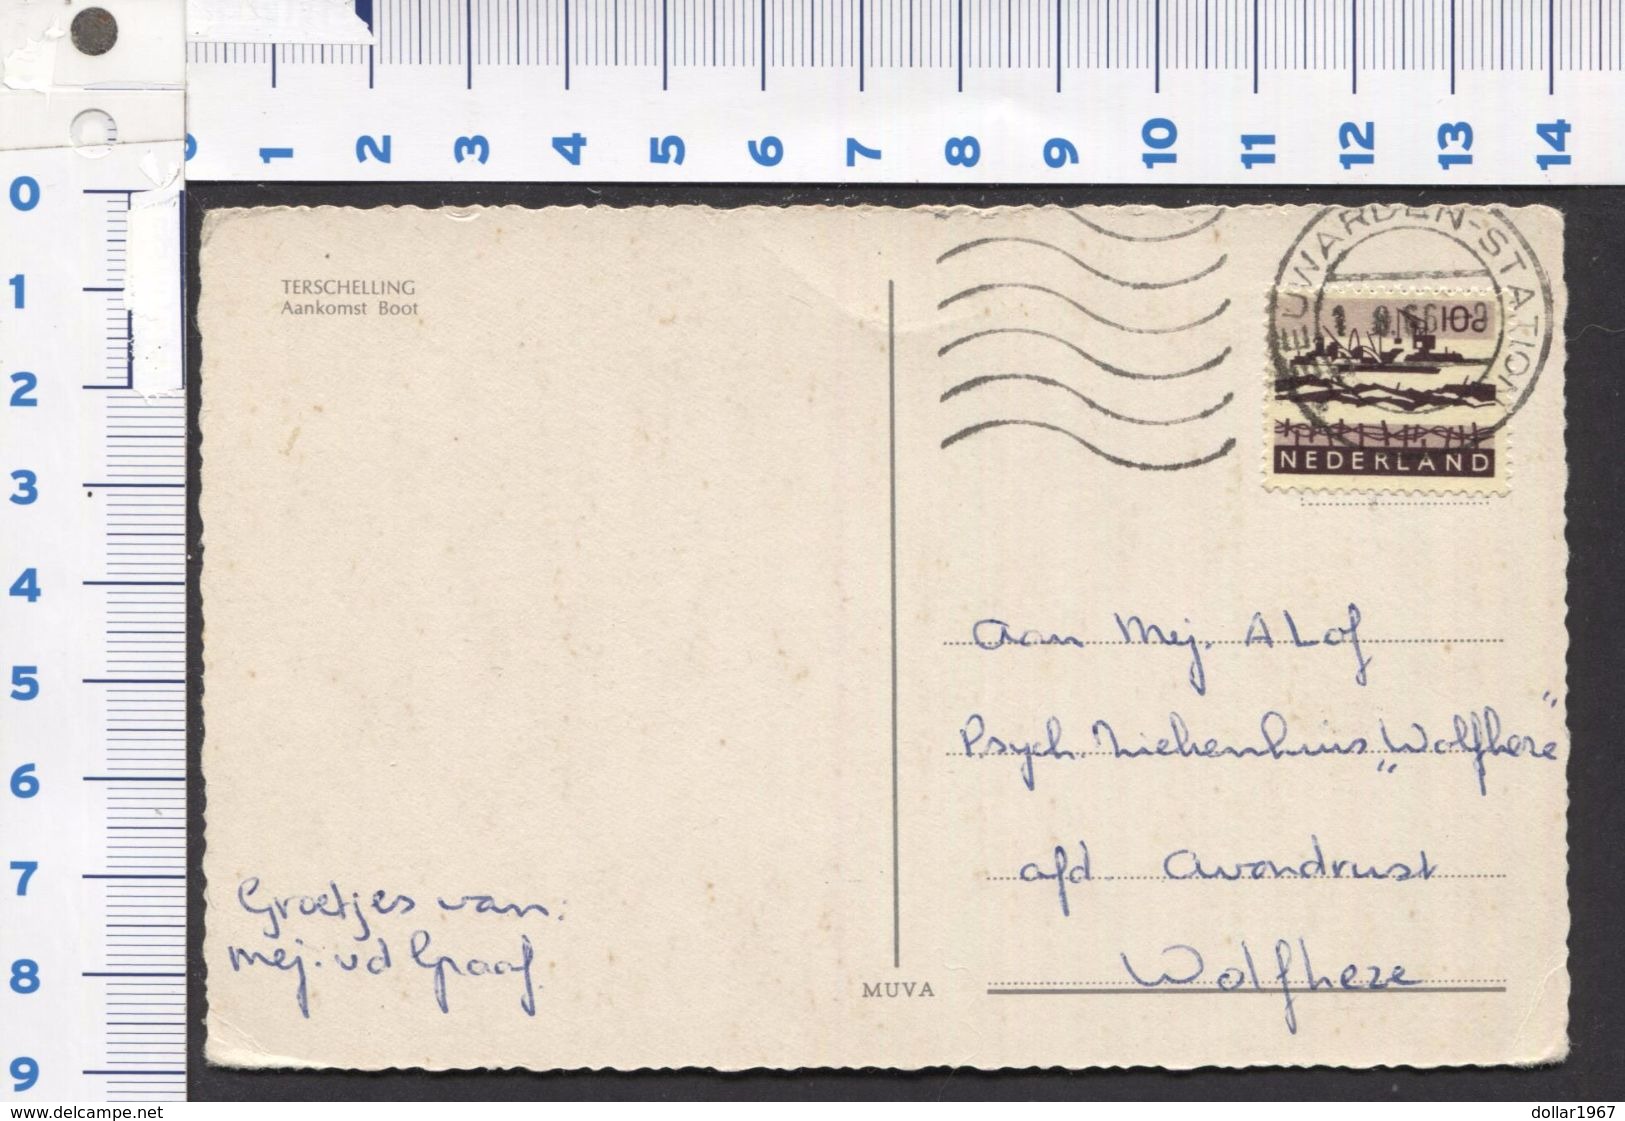 0 1 2 3 4 5 6 7 8 9 10 11 12 13 14
0
1
2
3
4
5
6
7
8
9
TERSCHELLING
Aankomst Boot
LEEUWARDEN-STATION
10c
NEDERLAND
Aan Mej. A Lof
Psych. Ziekenhuis „Wolfheze"
afd. Avondrust
Wolfheze
Groetjes van:
mej. vd Graaf.
MUVA
www.delcampe.net
dollar1967